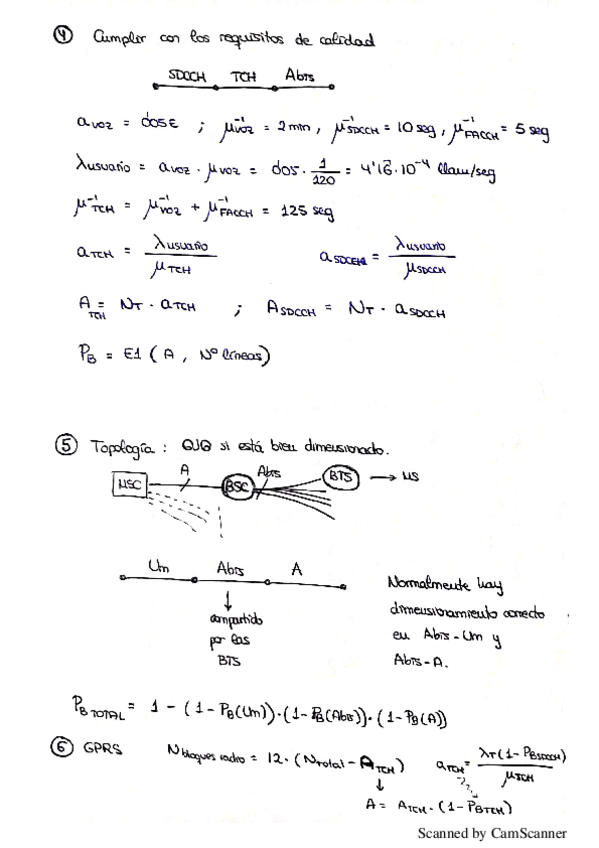 ④ Cumplir con los requisitos de calidad
SDCCH TCH Abis
a_VOZ = 0'05E ; μ_VOZ^-1 = 2min, μ_SDCCH^-1 = 10 seg, μ_FACCH^-1 = 5 seg
λusuario = a_VOZ · μ_VOZ = 0'05 · 1/120 = 4'16·10^-4 llam/seg
μ_TCH^-1 = μ_VOZ^-1 + μ_FACCH^-1 = 125 seg
a_TCH = λusuario / μ_TCH a_SDCCH = λusuario / μ_SDCCH
A_TCH = N_T · a_TCH ; A_SDCCH = N_T · a_SDCCH
P_B = E1 ( A , Nº líneas)
⑤ Topología: OJO si está bien dimensionado.
MSC A BSC Abis BTS → MS
Um Abis A
compartido
por las
BTS
Normalmente hay
dimensionamiento correcto
en Abis-Um y
Abis-A.
P_B TOTAL = 1 - (1-P_B(Um))·(1-P_B(Abis))·(1-P_B(A))
⑥ GPRS N bloques radio = 12·(N_total - A_TCH) a_TCH = λ_T(1-P_BSDCCH) / μ_TCH
A = A_TCH·(1-P_BTCH)
Scanned by CamScanner